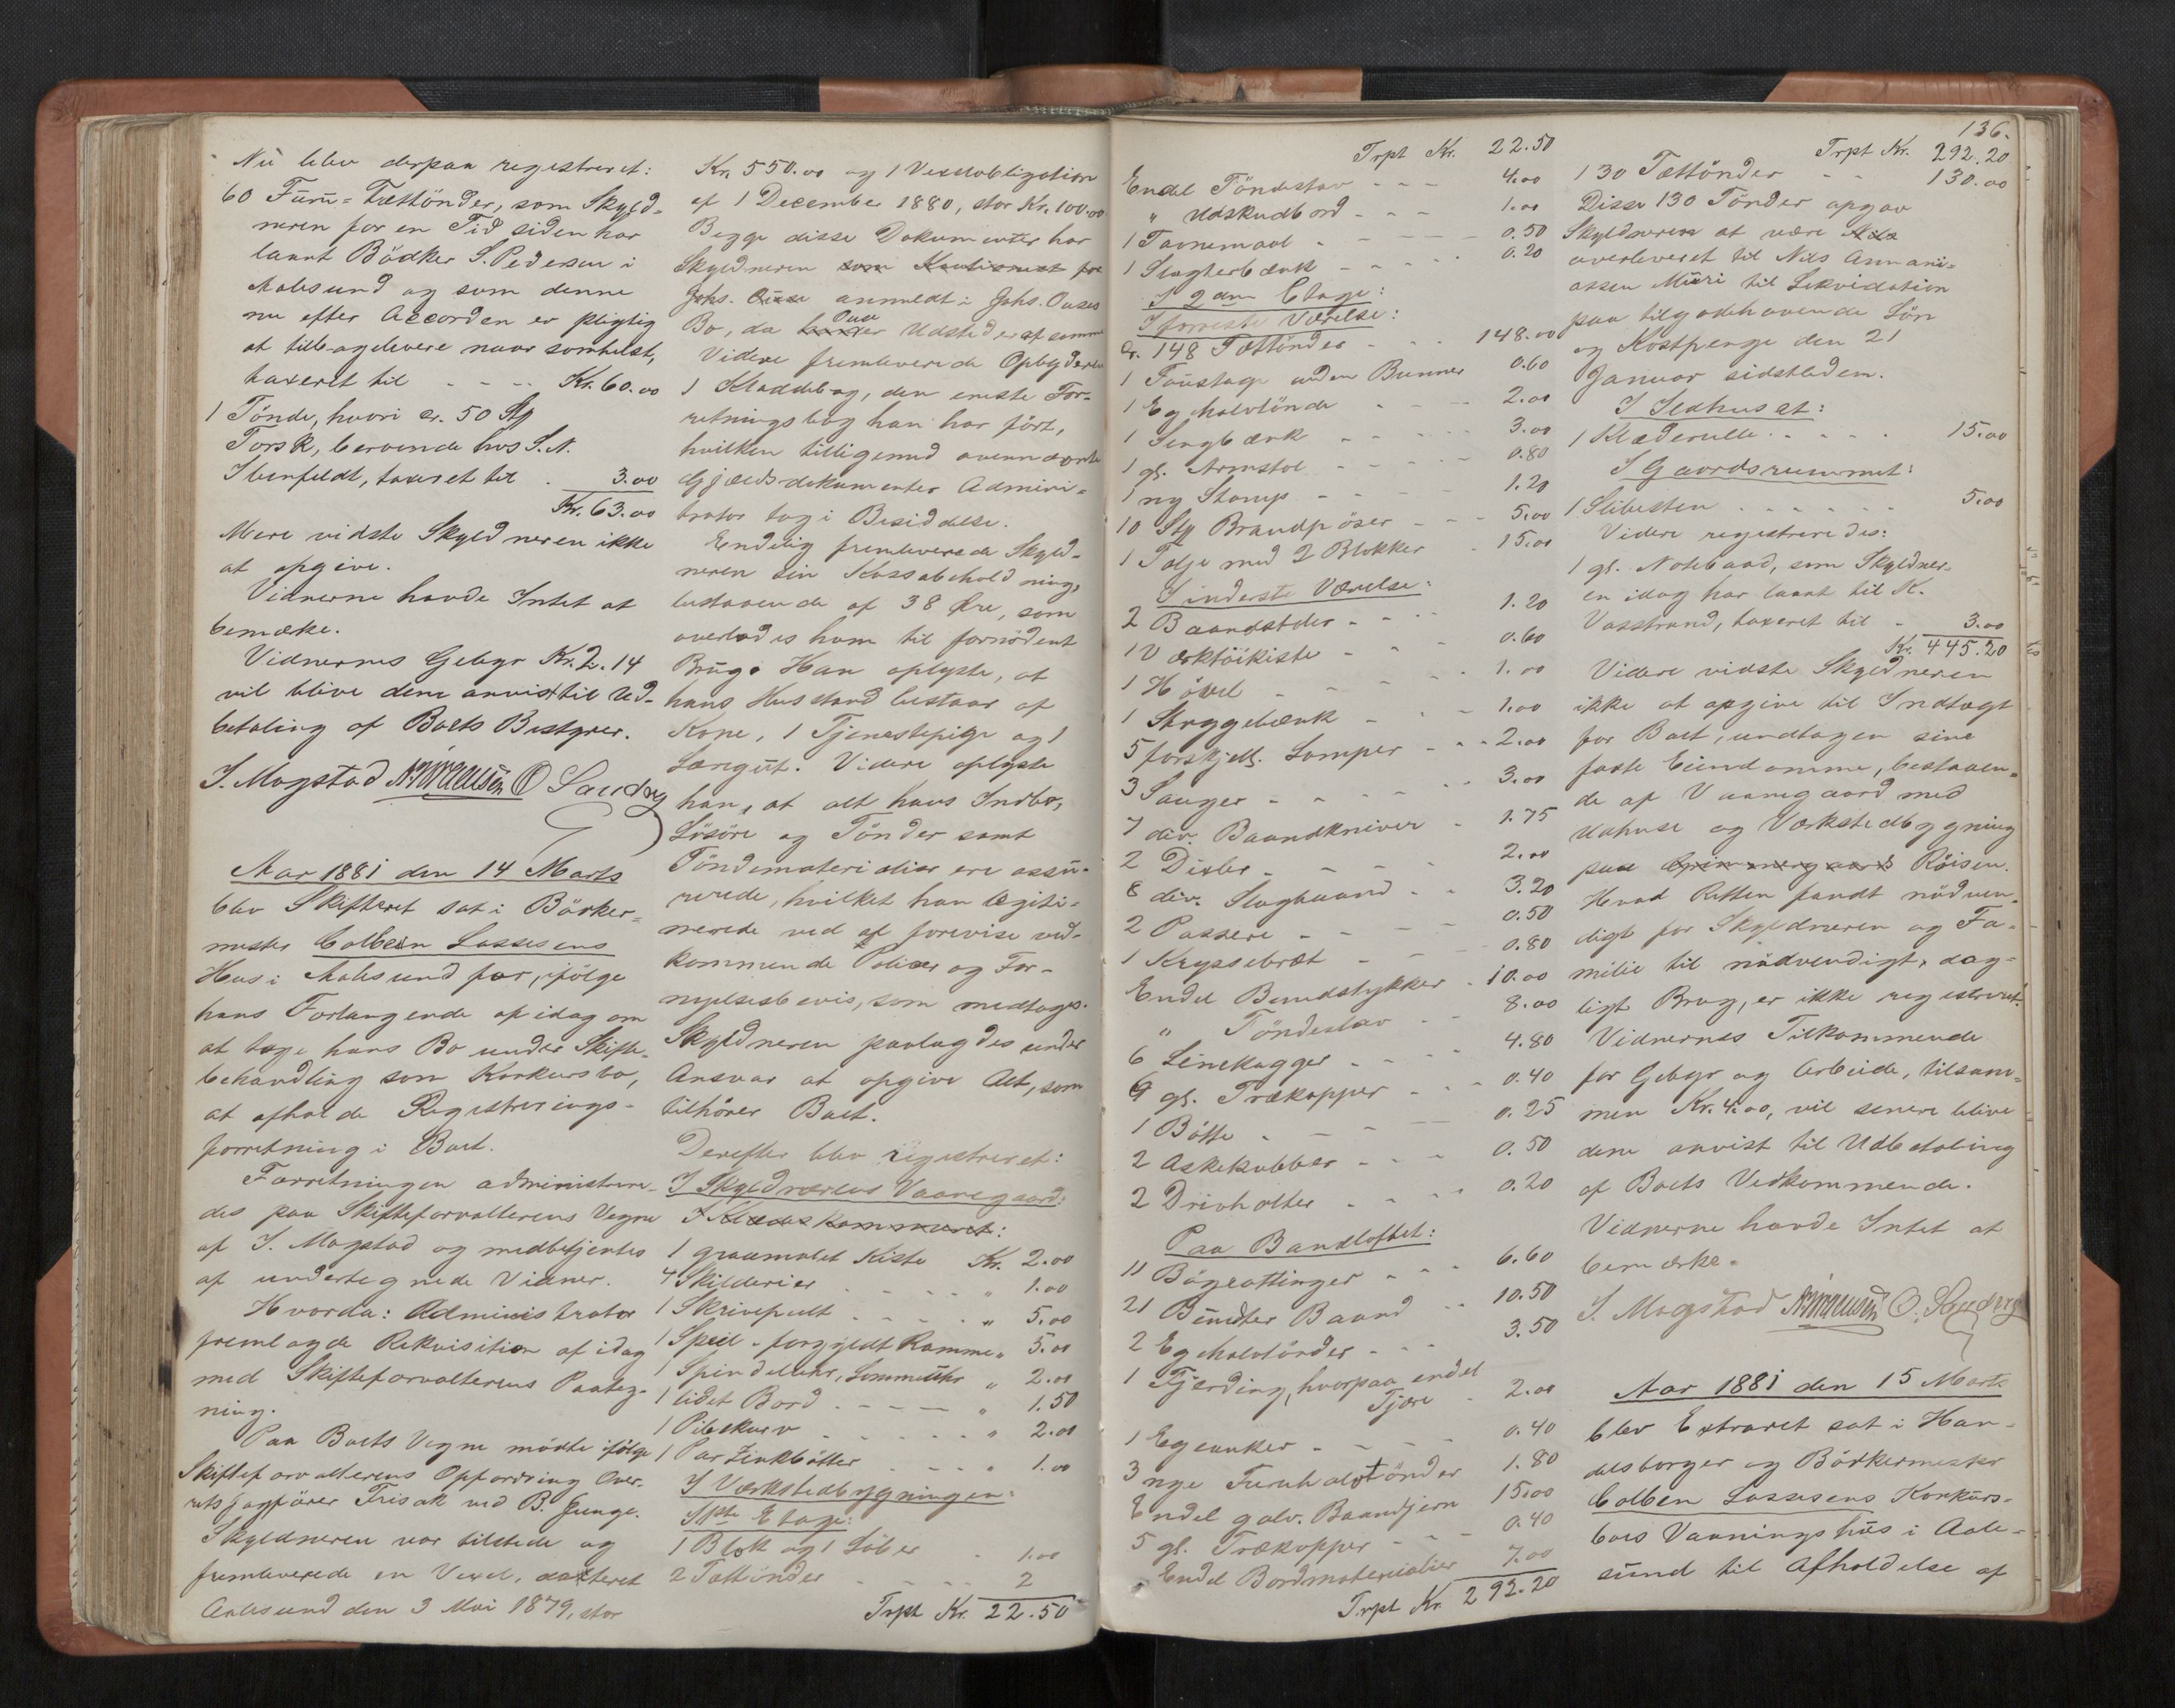 Nu blev derpaa registreret:
60 Furu-Trættönder, som Skyld-
neren for en Tid siden har
laant Bödker S. Pedersen i
Aalesund og som denne
nu efter Accorden er pligtig
at tilbagelevere naar somhelst,
taxeret til - - - Kr. 60.00
1 Tönde, hvori cr. 50 Stk
Torsk, beroende hos S. N.
Ibenfeldt, taxeret til . 3.00
Kr. 63.00
Mere vidste Skyldneren ikke
at opgive.
Vidnerne havde Intet at
bemærke.
Vidnernes Gebyr Kr. 2.14
vil blive dem anvist til Ud-
betaling af Boets Bestyrer.
S. Magstad O Sandby
Aar 1881 den 14 Marts
blev Skifteret sat i Bödker-
mester Colbein Lassesens
Hus i Aalesund for, ifölge
hans Forlangende af idag om
at tage hans Bo under Skifte-
behandling som Konkursbo,
at afholde Registrerings-
forretning i Boet.
Forretningen administrere-
des paa Skifteforvalterens Vegne
af S. Magstad og medbetjentes
af undertegnede Vidner.
Hvorda: Administrator
fremlagde Rekvisition af idag
med Skifteforvalterens Paateg-
ning.
Paa Boets Vegne mödte ifölge
Skifteforvalterens Opfordring Over-
retssagförer Frisak ved B. Junge.
Skyldneren var tilstede og
fremleverede en Vexel, dateret
Aalesund den 3 Mai 1879, stor
Kr. 550.00 og 1 Vexelobligation
af 1 December 1880, stor Kr. 100.00
Begge disse Dokumenter har
Skyldneren som Kautionist for
Johs. Ouse anmeldt i Johs. Ouses
Bo, da Ouse er Udsteder af samme
Videre fremleverede Opbyderen
1 Kladdebog, den eneste For-
retningsbog han har fört,
hvilken tilligemed ovennævnte
Gjældsdokumenter Admini-
strator tog i Besiddelse.
Endelig fremleverede Skyld-
neren sin Kassabeholdning,
bestaaende af 38 Öre, som
overlodes ham til fornödent
Brug. Han oplyste, at
hans Husstand bestaar af
Kone, 1 Tjenestepige og 1
Læregut. Videre oplyste
han, at alt hans Indbo,
Lösöre og Tönder samt
Töndematerialier ere assu-
rerede, hvilket han legiti-
merede ved at forevise ved-
kommende Policer og For-
nyelsesbevis, som medtoges.
Skyldneren paalagdes under
Ansvar at opgive Alt, som
tilhörer Boet.
Derefter blev registreret:
I Skyldnerens Vaaningsgaard:
I Klædeskammeret:
1 graamalet Kiste Kr. 2.00
4 Skilderier . . . . " 1.00
1 Skrivepult . . . . " 5.00
1 Speil - forgyldt Ramme " 5.00
1 Spindeluhr, Lommeuhr " 2.00
1 lidet Bord - - - - " 1.50
1 Pibekurv . . . . . " 2.00
1 Par Zinkbötter . . . . " 1.00
I Værkstedbygningen:
I 1ste Etage:
1 Blok og 1 Löber . 1.00
2 Tættönder . . . . 2
Trpt Kr. 22.50
Trpt Kr. 22.50
Endel Töndestav - - - 4.00
" Udskudbord - - - 1.00
1 Tavnemaal - - - - 0.50
1 Slagterbænk - - - - 0.20
I 2den Etage:
I forreste Værelse:
Cr. 148 Tættönder - - - 148.00
1 Foustage uden Bunner 0.60
1 Eg halvtönde - - - 2.00
1 Sengbænk - - - - 3.00
1 gl. Armstol - - - - 0.80
1 ny Stamp - - - - 1.20
10 Stk Brandpöser - - - 5.00
1 Talje med 2 Blokker - 15.00
I inderste Værelse:
2 Baandstoler - - - 1.20
1 Værktöikiste - - - 0.60
1 Hövel - - - - - 1.00
1 Stryggebænk - - - 1.00
5 forskjell. Lamper - - - 2.00
3 Sauger - - - - - 3.00
7 div. Baandkniver - 1.75
2 Dixler - - - - 2.00
8 div. Slagbaand - - - 3.20
2 Passere - - - - 0.50
1 Kryssebræt - - - 0.80
Endel Bundstykker - 10.00
" Töndestav - - 8.00
6 Linekagger - - - - 4.80
9 gl. Trækopper - - - 0.40
1 Bötte - - - - 0.25
2 Askekubber - - - 0.50
2 Drivholter - - - - 0.20
Paa Bandloftet:
11 Bögeottinger - - - 6.60
21 Bundter Baand - - 10.50
2 Eg halvtönder - - - 3.50
1 Fjerding, hvorpaa endel
Tjære - 2.00
1 Egeanker - - - - 0.40
3 nye Furuhalvtönder 1.80
Endel galv. Baandjern 15.00
5 gl. Trækopper - - 0.40
Endel Bordmaterialier 7.00
Trpt Kr. 292.20
136.
Trpt Kr. 292.20
130 Tættönder - - 130.00
Disse 130 Tönder opgav
Skyldneren at være
overleveret til Nils Annani-
assen Muri til Likvidation
paa tilgodehavende Lön
og Kostpenge den 21
Januar sidstleden.
I Ildhuset:
1 Klæderulle . . . . . 15.00
I Gaardsrummet:
1 Slibesten . . . . . . 5.00
Videre registreredes:
1 gl. Notebaad, som Skyldner-
en idag har laant til K.
Vasstrand, taxeret til - 3.00
Kr. 445.20
Videre vidste Skyldneren
ikke at opgive til Indtægt
for Boet, undtagen sine
faste Eiendomme, bestaaen-
de af Vaaningsgaard med
Udhuse og Værkstedbygning
paa Röisen.
Hvad Retten fandt nödven-
digt for Skyldneren og Fa-
milie til nödvendigt, dag-
ligt Brug, er ikke registreret.
Vidnernes Tilkommende
for Gebyr og Arbeide, tilsam-
men Kr. 4.00, vil senere blive
dem anvist til Udbetaling
af Boets Vedkommende.
Vidnerne havde Intet at
bemærke.
S. Magstad O. Sandby
Aar 1881 den 15 Marts
blev Extraret sat i Han-
delsborger og Bödkermester
Colben Lassesens Konkurs-
boes Vaaningshus i Aale-
sund til Afholdelse af